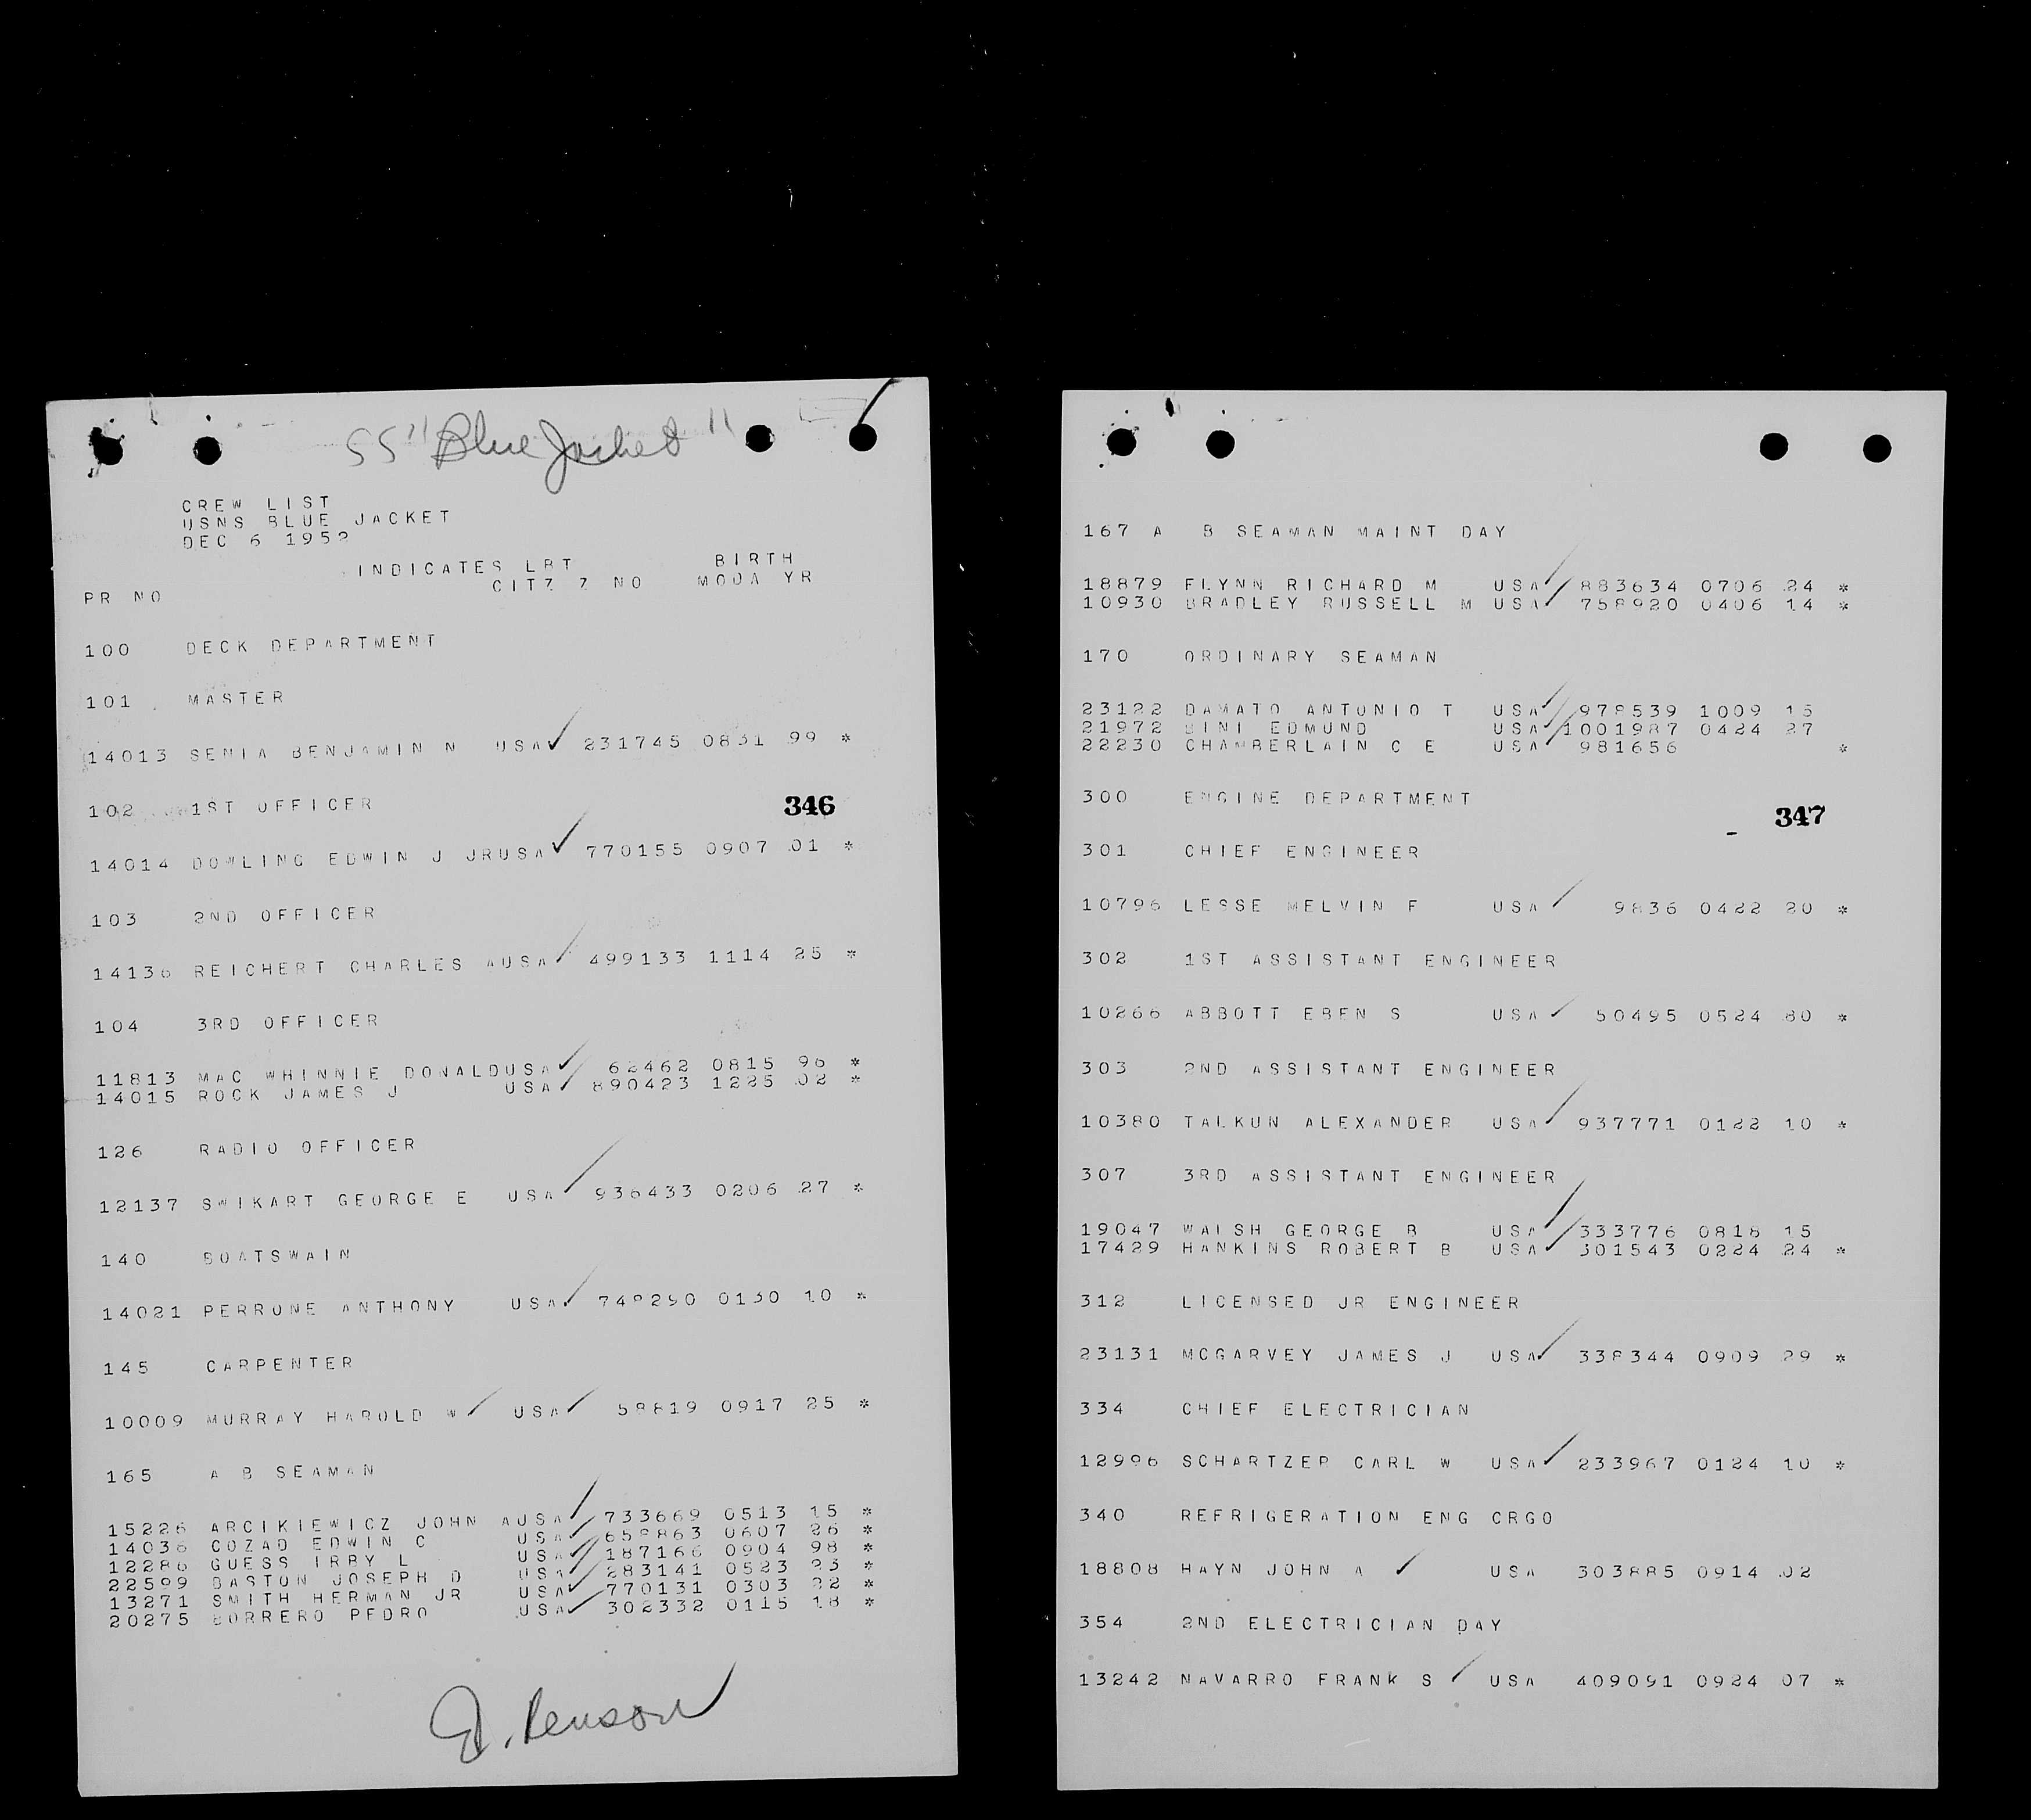 SS "Blue Jacket"
CREW LIST
USNS BLUE JACKET
DEC 6 1952
INDICATES LBT BIRTH
PR NO CITZ Z NO MODA YR
100 DECK DEPARTMENT
101 MASTER
14013 SENIA BENJAMIN N USA 231745 0831 99 *
102 1ST OFFICER
346
14014 DOWLING EDWIN J JRUSA 770155 0907 01 *
103 2ND OFFICER
14136 REICHERT CHARLES AUSA 499133 1114 25 *
104 3RD OFFICER
11813 MAC WHINNIE DONALDUSA 62462 0815 96 *
14015 ROCK JAMES J USA 890423 1225 02 *
126 RADIO OFFICER
12137 SWIKART GEORGE E USA 936433 0206 27 *
140 BOATSWAIN
14021 PERRONE ANTHONY USA 748290 0130 10 *
145 CARPENTER
10009 MURRAY HAROLD W USA 58819 0917 25 *
165 A B SEAMAN
15226 ARCIKIEWICZ JOHN AUSA 733669 0513 15 *
14036 COZAD EDWIN C USA 658863 0607 26 *
12286 GUESS IRBY L USA 187166 0904 98 *
22599 BASTON JOSEPH D USA 283141 0523 23 *
13271 SMITH HERMAN JR USA 770131 0303 22 *
20275 BORRERO PEDRO USA 302332 0115 18 *
167 A B SEAMAN MAINT DAY
18879 FLYNN RICHARD M USA 883634 0706 24 *
10930 BRADLEY RUSSELL M USA 758920 0406 14 *
170 ORDINARY SEAMAN
23122 DAMATO ANTONIO T USA 978539 1009 15
21972 BINI EDMUND USA 1001987 0424 27
22230 CHAMBERLAIN C E USA 981656 *
300 ENGINE DEPARTMENT
347
301 CHIEF ENGINEER
10796 LESSE MELVIN F USA 9836 0422 20 *
302 1ST ASSISTANT ENGINEER
10266 ABBOTT EBEN S USA 50495 0524 80 *
303 2ND ASSISTANT ENGINEER
10380 TALKUN ALEXANDER USA 937771 0122 10 *
307 3RD ASSISTANT ENGINEER
19047 WALSH GEORGE B USA 333776 0818 15
17429 HANKINS ROBERT B USA 301543 0224 24 *
312 LICENSED JR ENGINEER
23131 MCGARVEY JAMES J USA 338344 0909 29 *
334 CHIEF ELECTRICIAN
12996 SCHARTZER CARL W USA 233967 0124 10 *
340 REFRIGERATION ENG CRGO
18808 HAYN JOHN A USA 303885 0914 02
354 2ND ELECTRICIAN DAY
13242 NAVARRO FRANK S USA 409091 0924 07 *